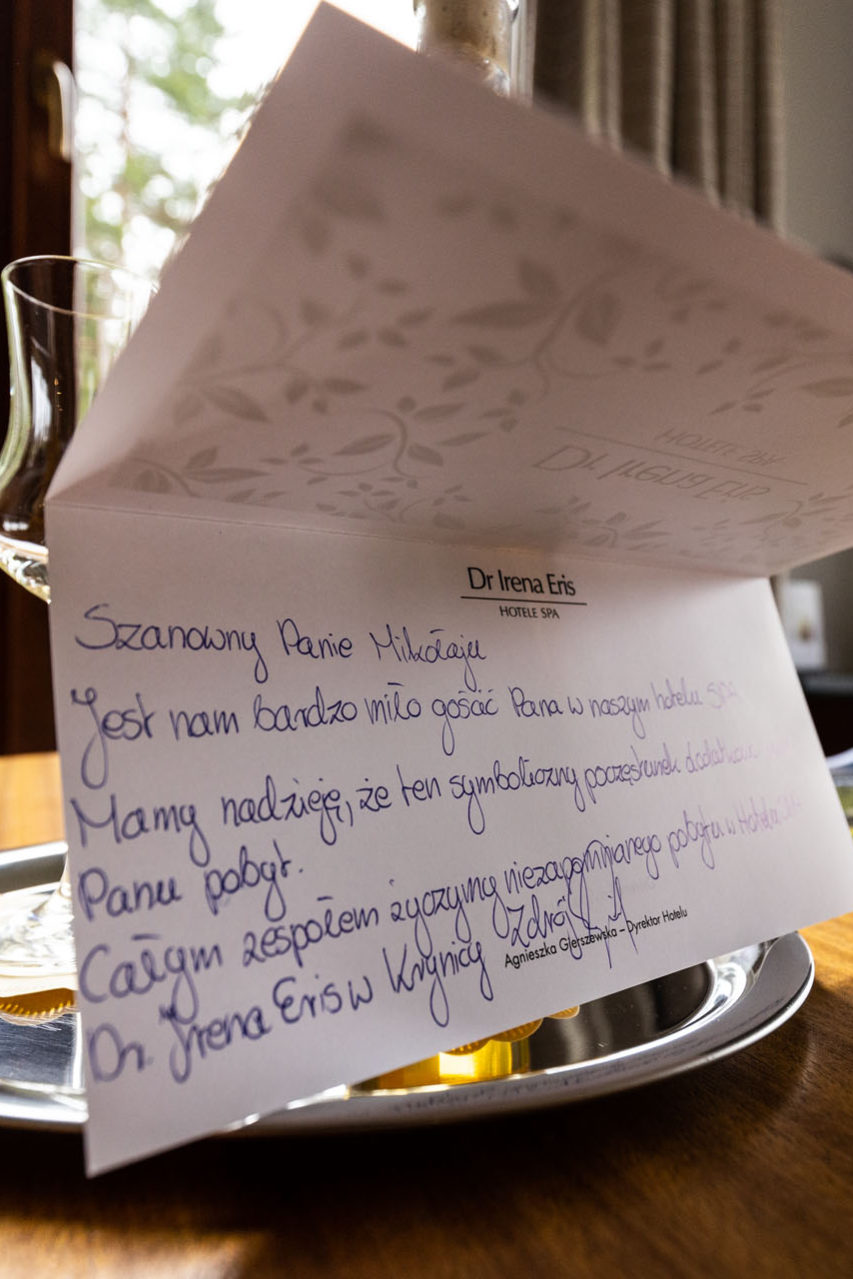 Dr Irena Eris
HOTELE SPA
Dr Irena Eris
HOTELE SPA
Szanowny Panie Mikołaju
Jest nam bardzo miło gościć Pana w naszym hotelu SPA
Mamy nadzieję, że ten symboliczny poczęstunek dodatkowo
Panu pobyt.
Całym zespołem życzymy niezapomnianego pobytu w Hotelu
Dr. Irena Eris w Krynicy Zdrój
Agnieszka Gierszewska – Dyrektor Hotelu